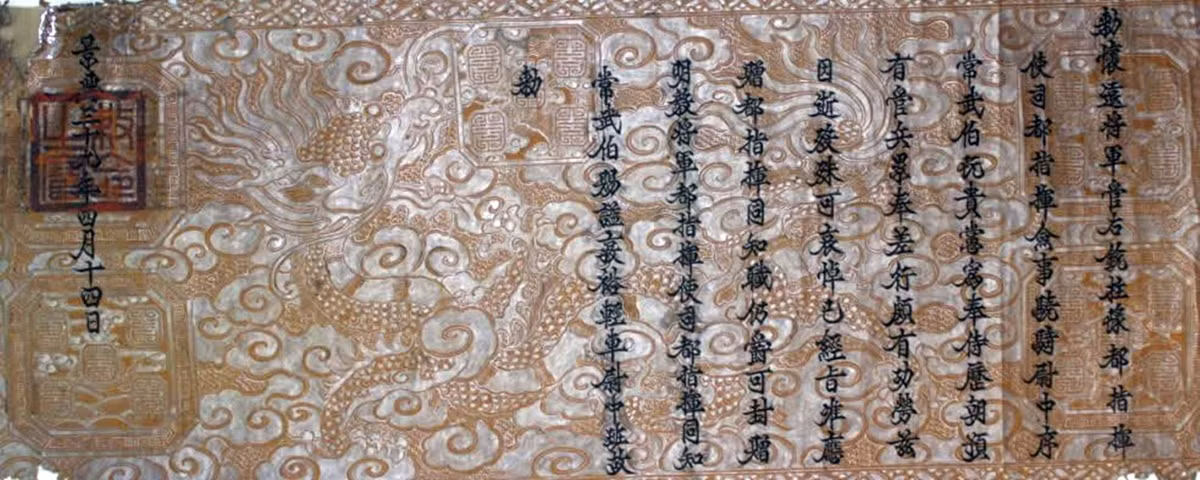 勅懷遠將軍管右銃都指揮
使司都指揮僉事驍騎尉中序
常武伯阮貴當爲奉侍歷朝
有管兵累奉差行頗有功勞茲
因近殁殊可哀悼已經旨准應
贈都指揮同知職仍爵可封贈
明義將軍都指揮使司都指揮同知
常武伯賜謚裕輕車尉中班故
勅
景興三十九年四月十四日